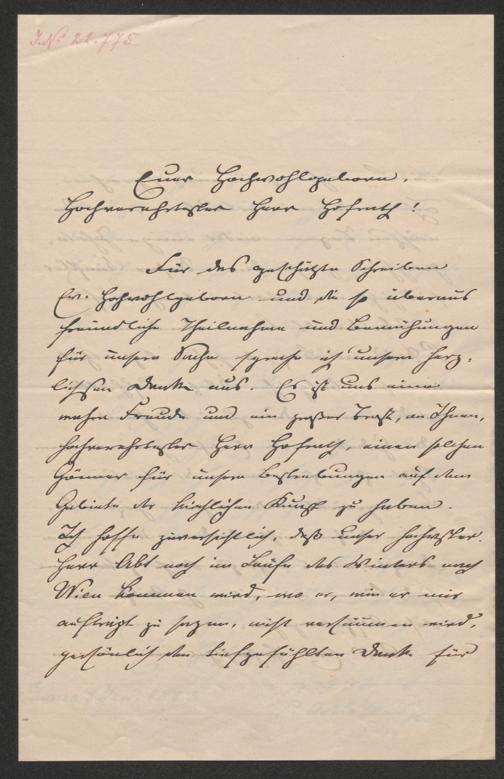 I.N. 22.775
Euer Hochwohlgeboren,
Hochverehrtester Herr Hofrath!
Für das geschätzte Schreiben
Ew. Hochwohlgeboren und die so überaus
freundliche Theilnahme und Bemühungen
für unsere Sache spreche ich unsern herz-
lichsten Dank aus. Es ist uns eine
wahre Freude und ein großer Trost, an Ihnen,
hochverehrtester Herr Hofrath, einen solchen
Gönner für unsere Bestrebungen auf dem
Gebiete der kirchlichen Kunst zu haben.
Ich hoffe zuversichtlich, daß unser hochwster.
Herr Abt noch im Laufe des Winters nach
Wien kommen wird, wo er, wie er mir
aufträgt zu sagen, nicht versäumen wird,
persönlich den tiefgefühlten Dank für